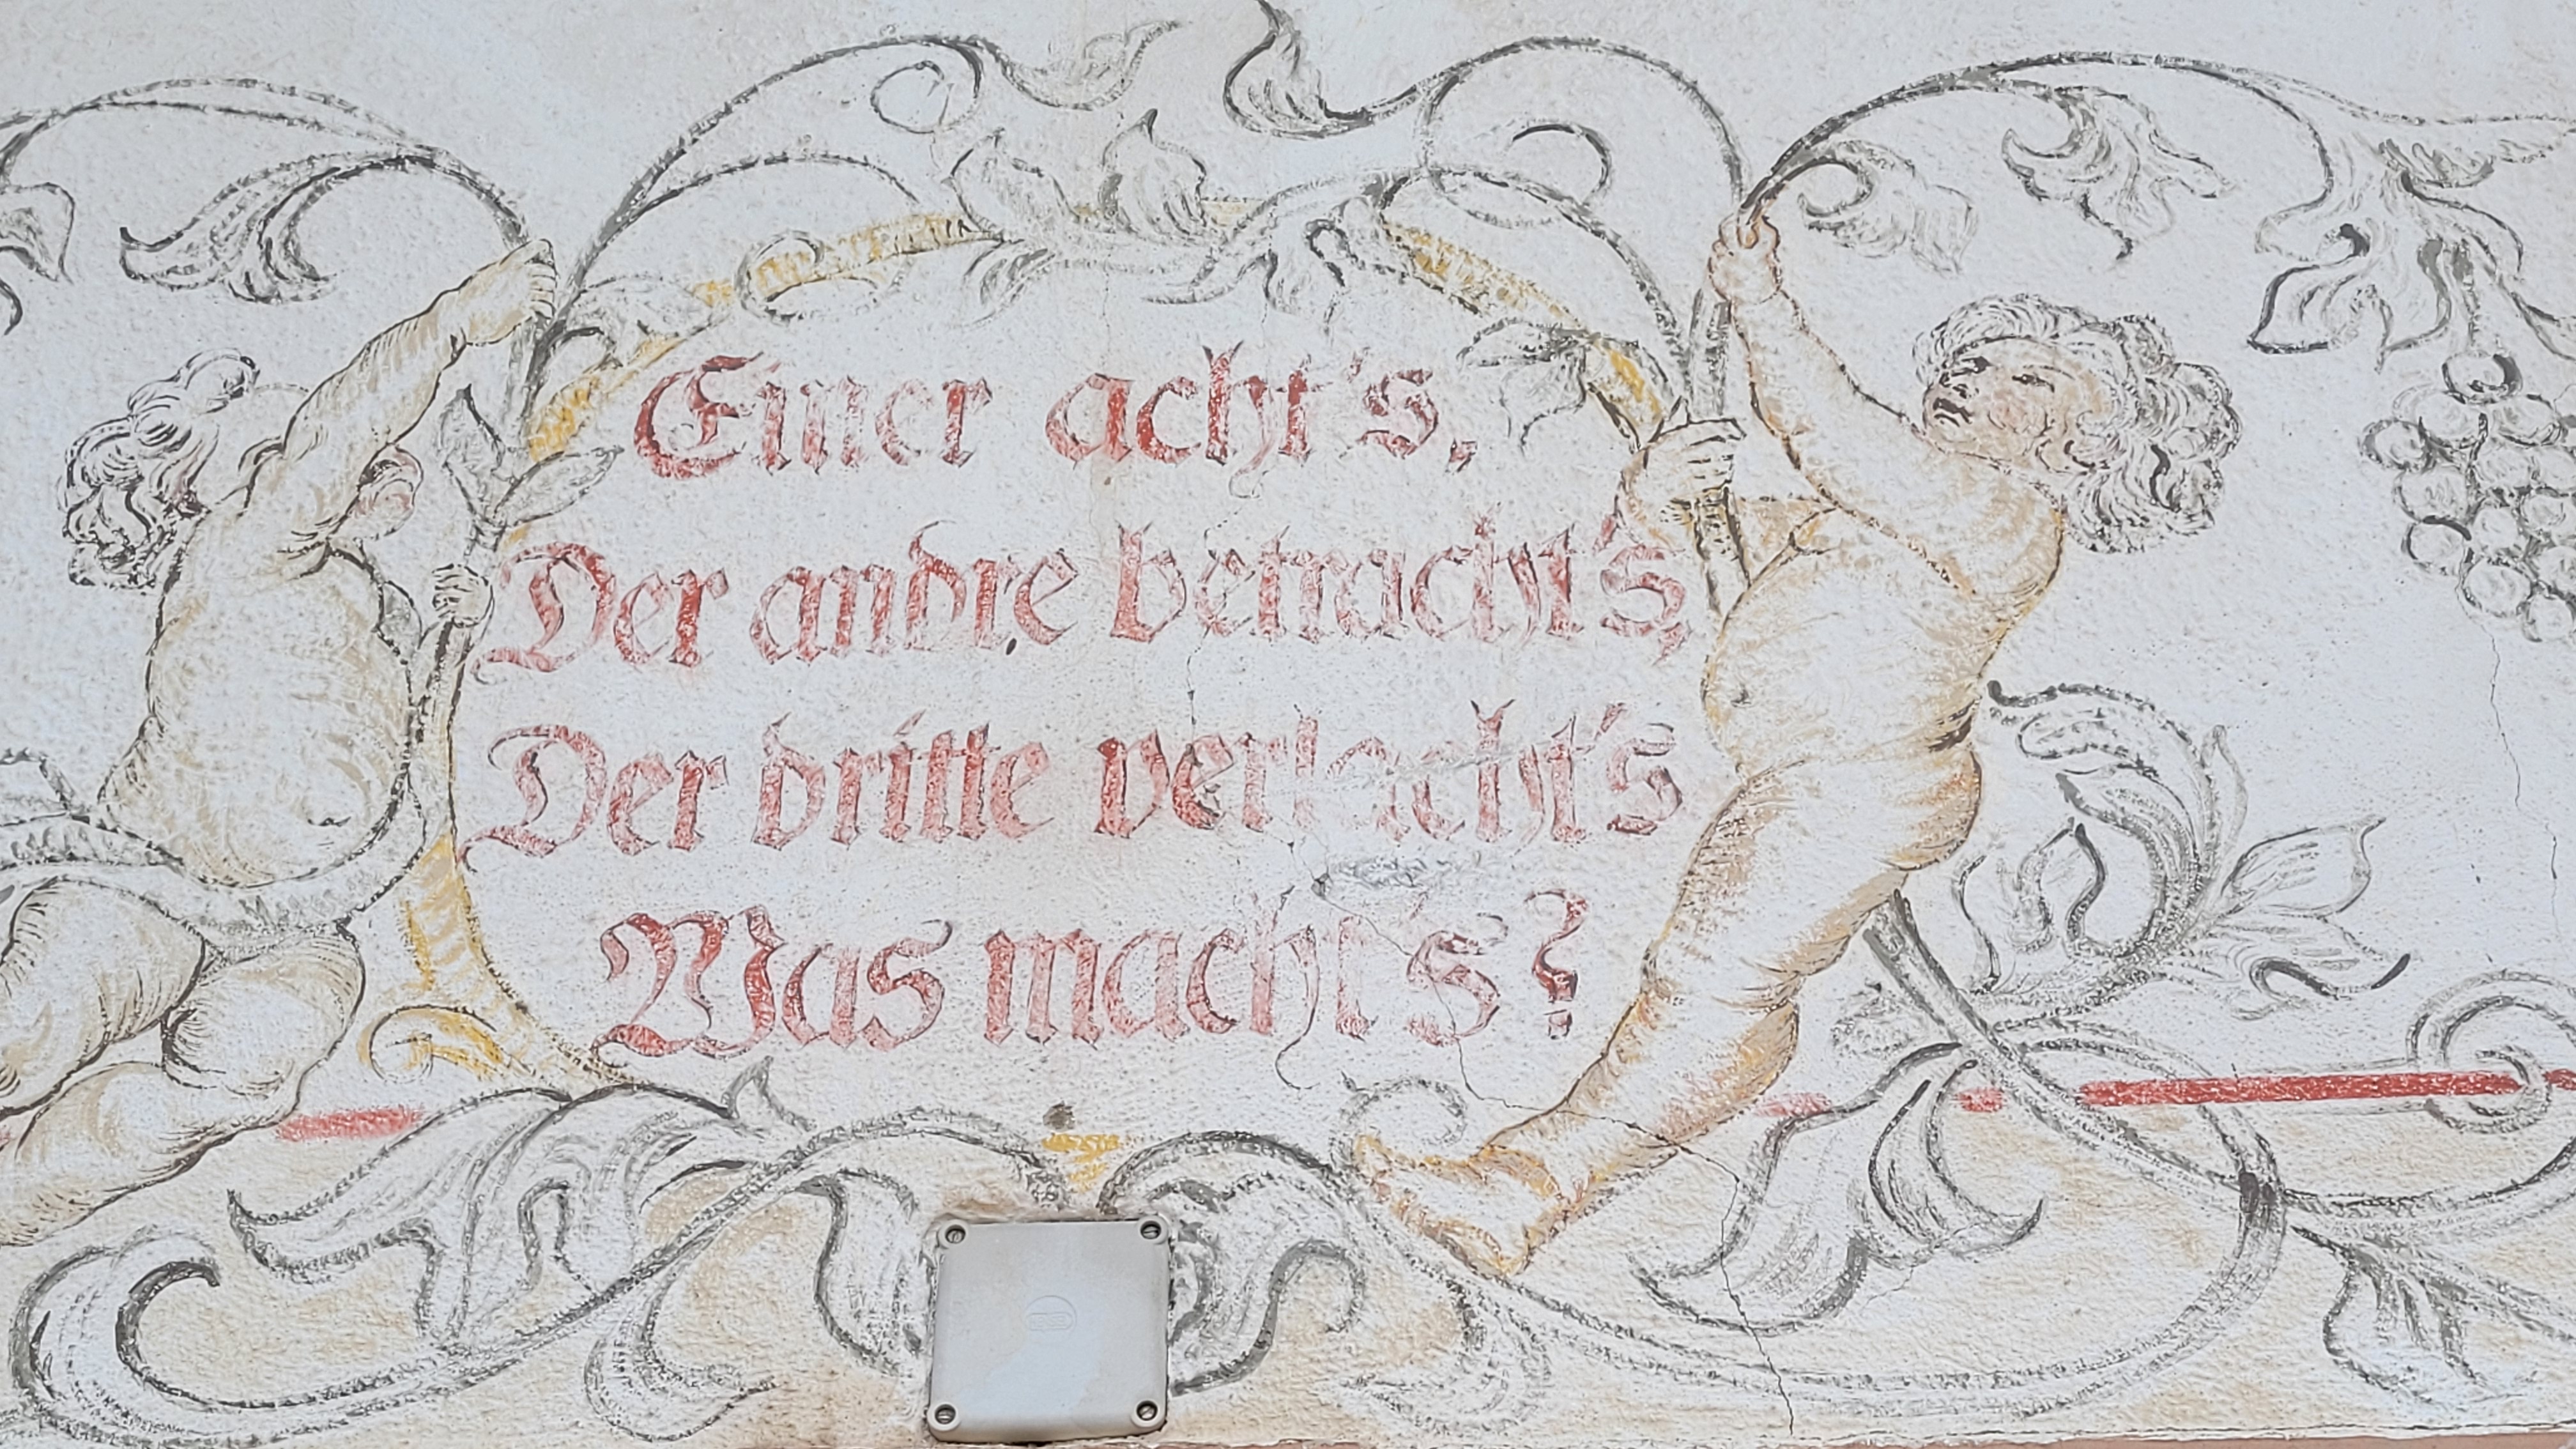 Einer acht's,
Der andre betracht's,
Der dritte verlacht's
Was macht's?